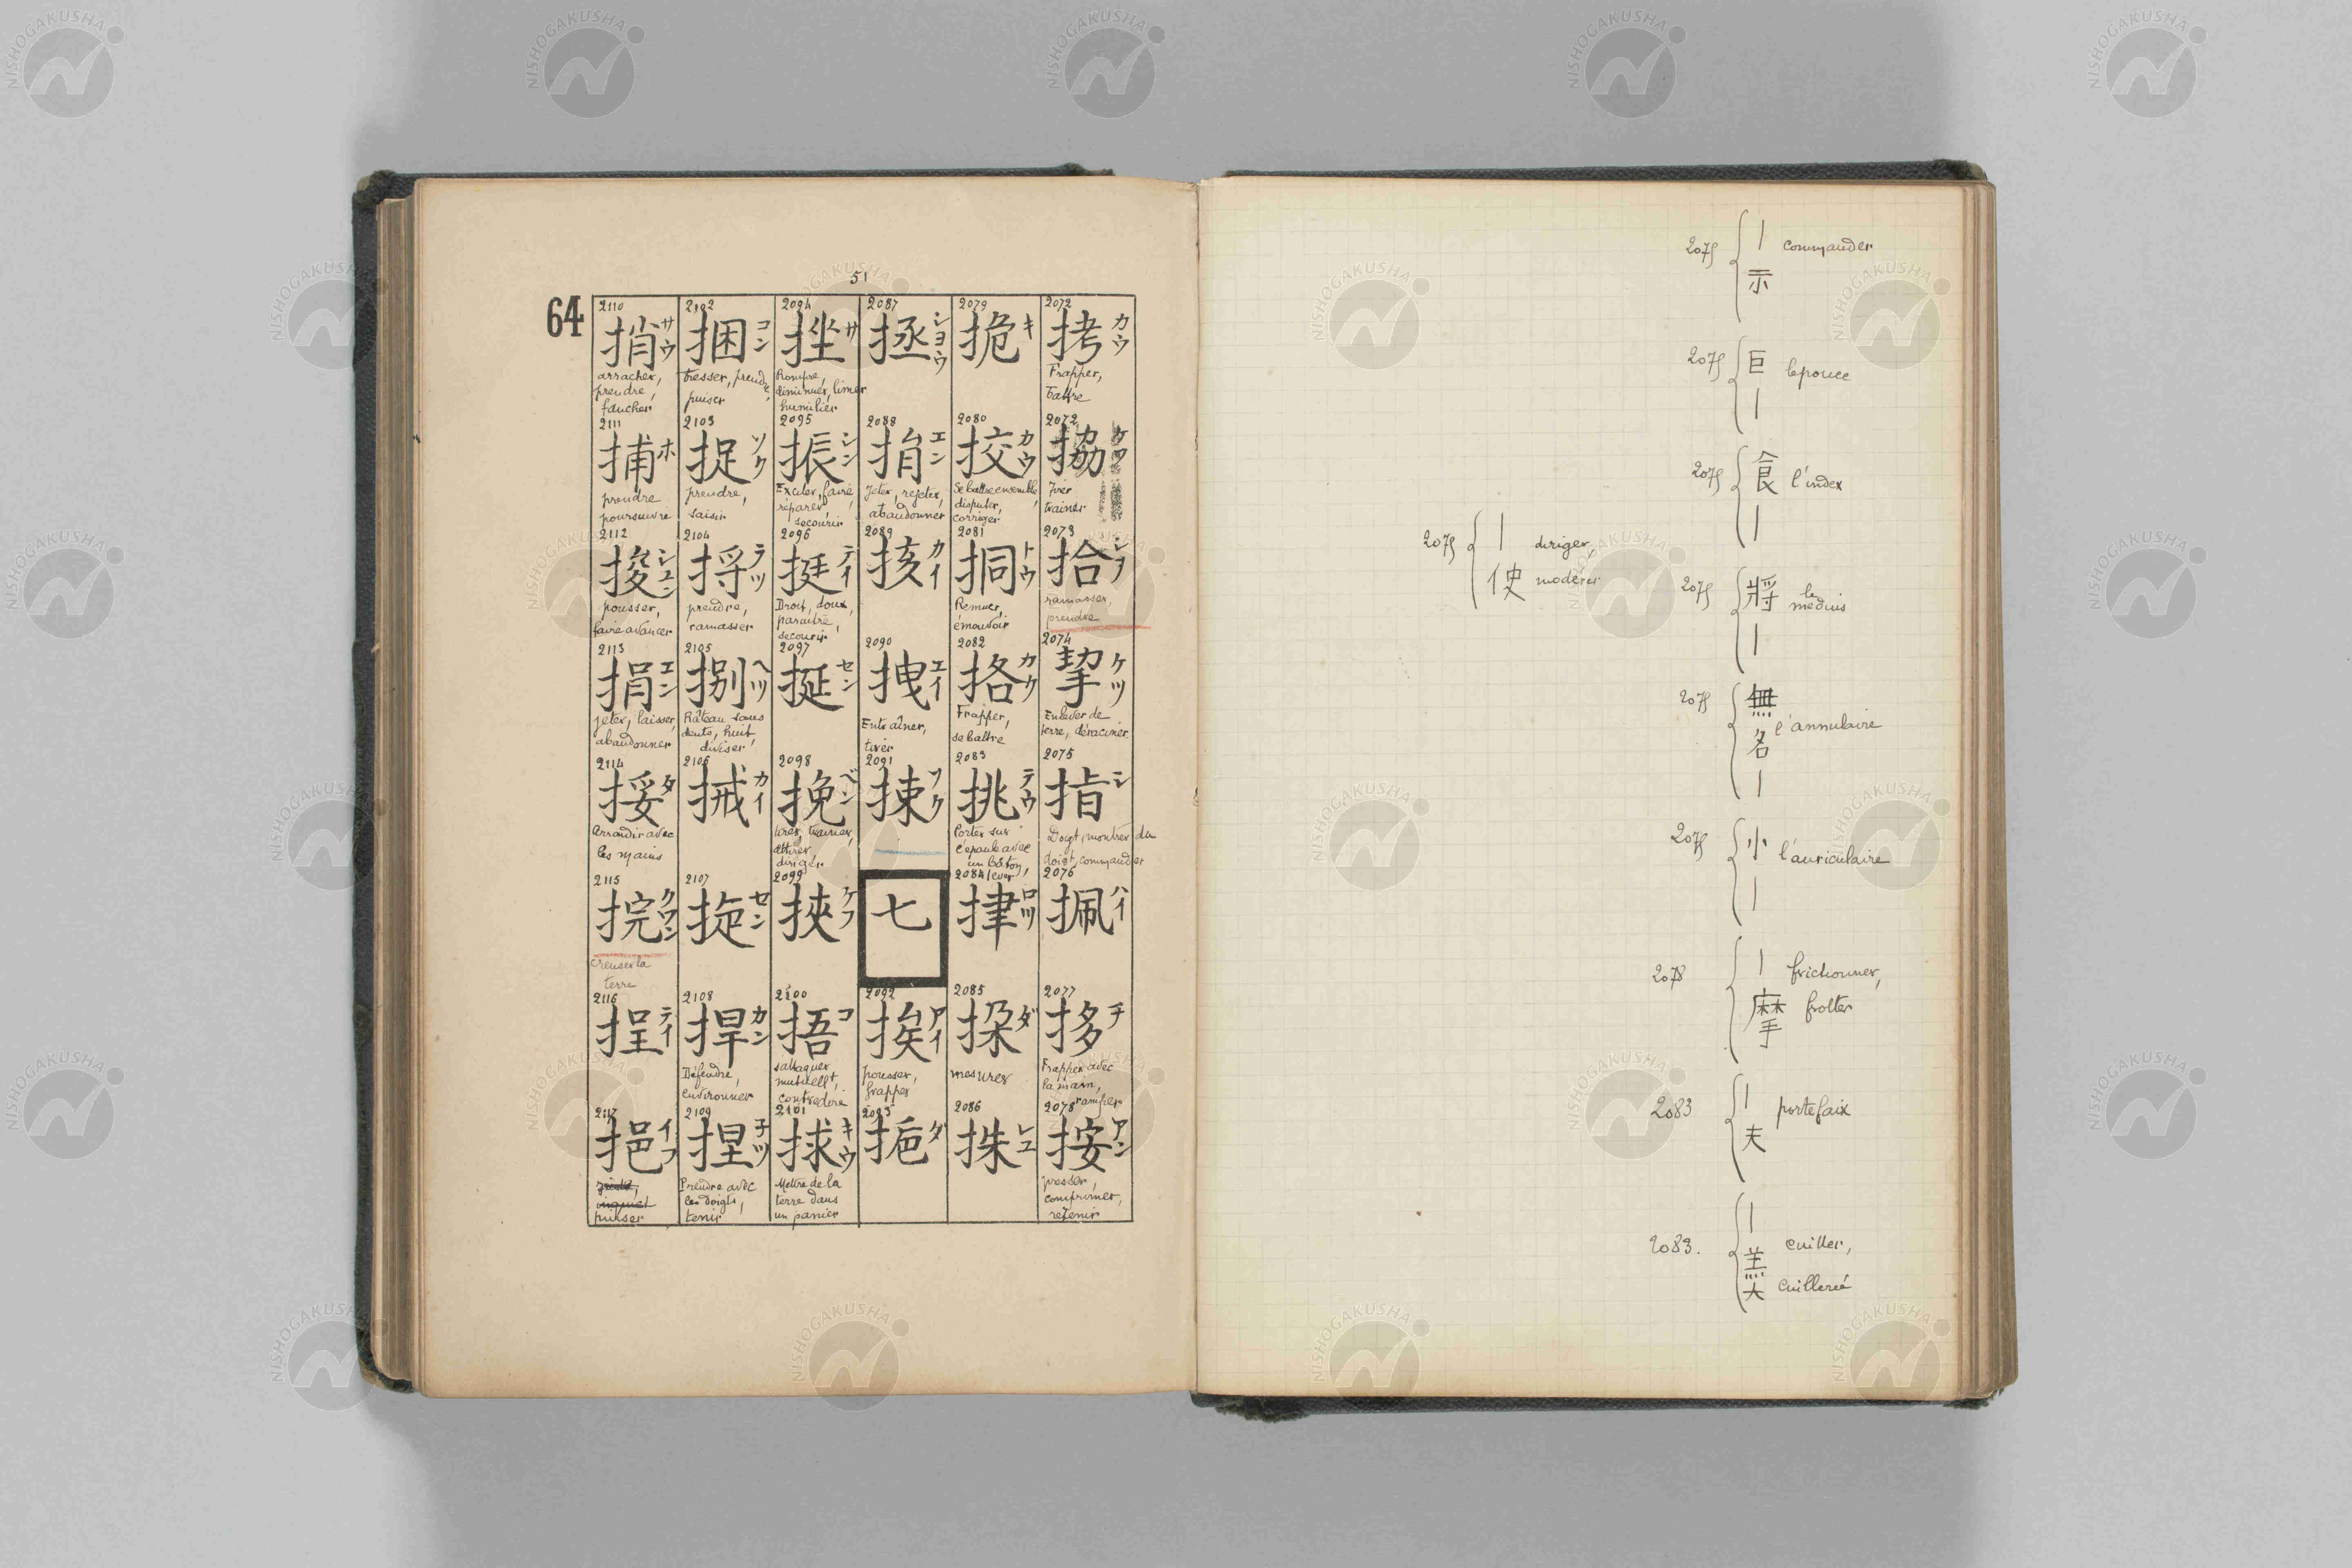 51
64
2072
拷 カウ
Frapper,
battre
2072
拹
Tirer
trainer
2073
拾 シフ
ramasser,
prendre
2074
挈 ケツ
Enlever de
terre, déraciner
2075
指 シ
Doigt, montrer du
doigt, commander
2076
挕 ハイ
2077
拸 チ
Frapper avec
la main,
ramper
2078
按 アン
presser,
comprimer,
retenir
2079
挄 キ
2080
挍 カウ
Se battre ensemble,
disputer,
corriger
2081
挏 トウ
Remuer,
émouvoir
2082
挌 カク
Frapper,
se battre
2083
挑 テウ
Porter sur
l'épaule avec
un bâton,
lever
2084
硉 ロツ
2085
挅 ダ
mesurer
2086
株 シユ
2087
拯 シヨウ
2088
捐 エン
Jeter, rejeter,
abandonner
2089
挔 カイ
2090
拽 エイ
Entraîner,
tirer
2091
捒 ソク
七
2092
挨 アイ
pousser,
frapper
2093
2094
挫 サ
Rompre,
diminuer, limer
humilier
2095
振 シン
Exciter, faire,
réparer,
secourir
2096
挺 テイ
Droit, doux,
paraître,
secourir
2097
挻 セン
2098
挽 ベン
tirer, trainer,
attirer
diriger
2099
挾 ケフ
2100
捂 コ
s'attaquer
mutuellt,
contredire
2101
捄 キウ
Mettre de la
terre dans
un panier
2102
捆 コン
Tresser, prendre,
puiser
2103
捉 ソク
prendre,
saisir
2104
捋 ラツ
prendre,
ramasser
2105
捌 ヘツ
Râteau sans
dents, huit,
diviser
2106
掝 カイ
2107
㨘 セン
2108
捍 カン
Défendre,
environner
2109
捏 子ツ
Prendre avec
les doigts,
tenir
2110
捎 サウ
arracher,
prendre,
faucher
2111
捕 ホ
prendre
poursuivre
2112
捘 シユン
pousser,
faire avancer
2113
捐 エン
jeter, laisser,
abandonner
2114
挼 タ
Arrondir avec
les mains
2115
捖 クワン
creuser la
terre
2116
挰 テイ
2117
挹 イフ
puiser
2075 { 〡 示 commander
2075 { 巨 〡 le pouce
2075 { 食 〡 l'index
2075 { 〡 使 diriger, modérer
2075 { 將 〡 le medius
2075 { 無 名 〡 l'annulaire
2075 { 小 〡 l'auriculaire
2078 { 〡 摩 frictionner, frotter
2083 { 〡 夫 portefaix
2083. { 〡 羹 cuiller, cuillerée
NISHOGAKUSHA